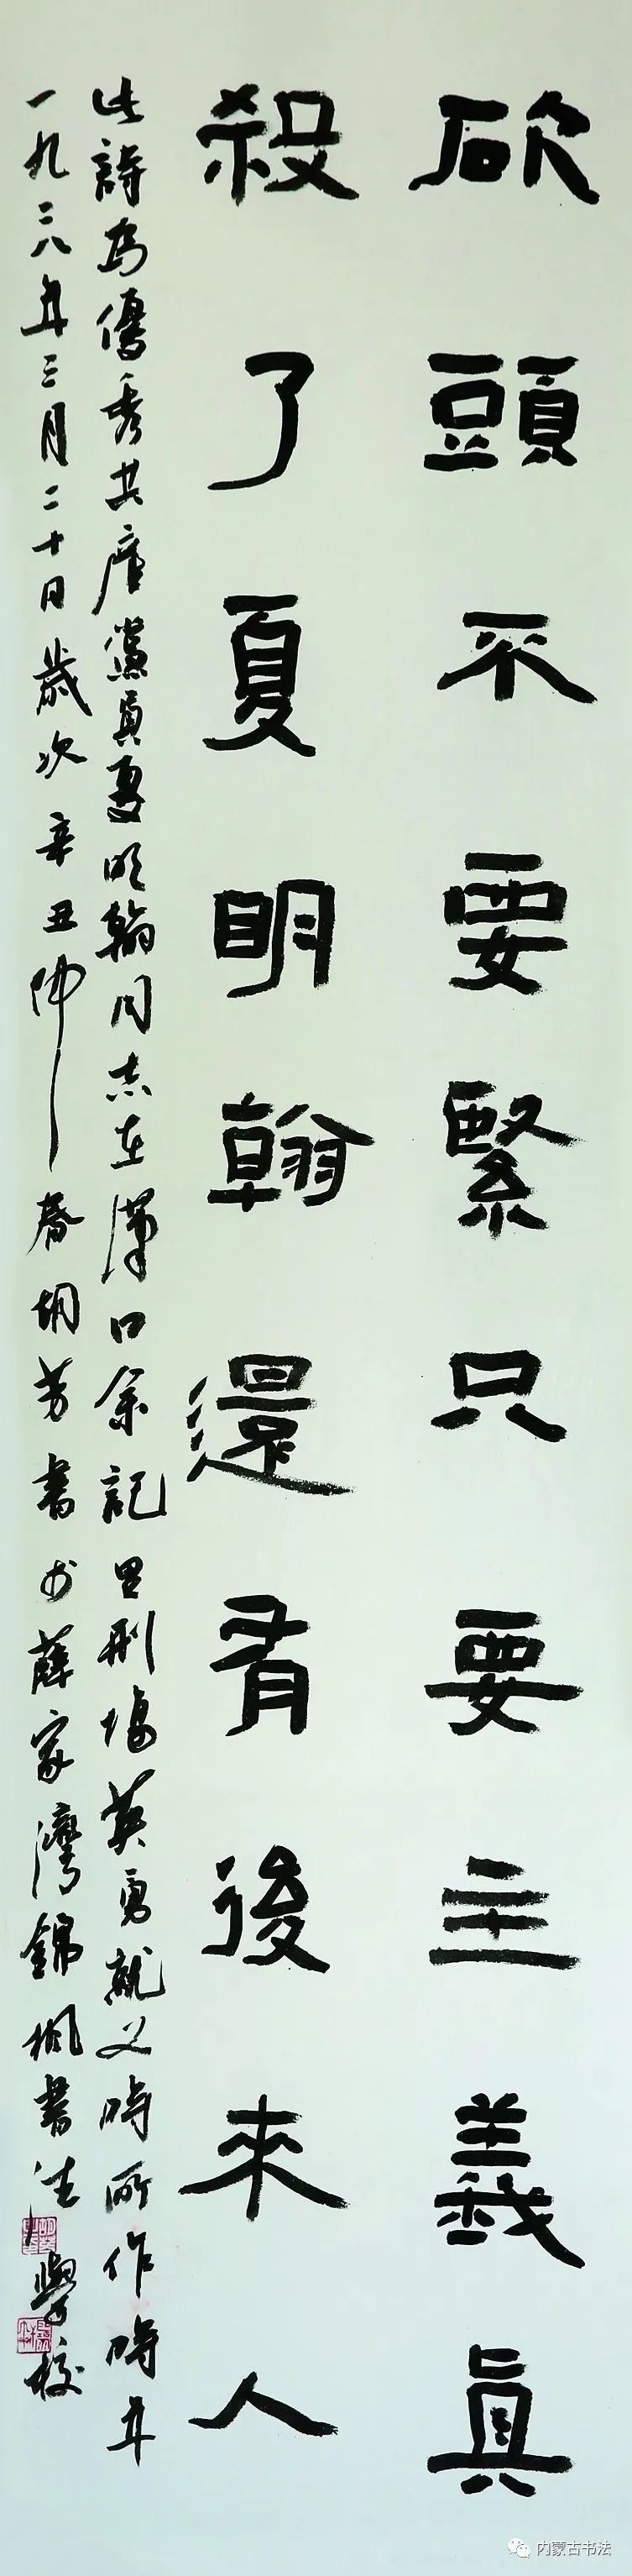 砍頭不要緊只要主義眞
殺了夏明翰還有後來人
此詩爲優秀共產黨員夏明翰同志在漢口余記里刑場英勇就义時所作時年
一九二八年三月二十日歲次辛丑仲春胡芳書於薛家灣錦楓書法學校
内蒙古书法